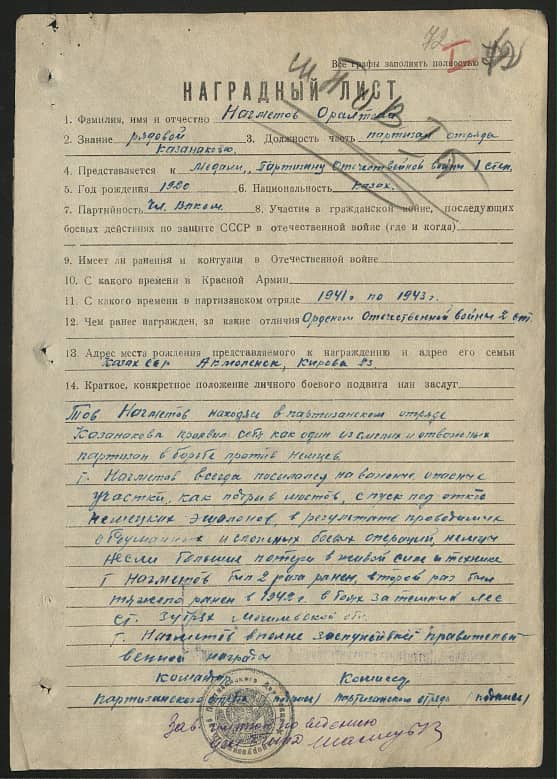 72
I
Все графы заполнять полностью
НАГРАДНЫЙ ЛИСТ
1. Фамилия, имя и отчество Нагметов
2. Звание рядовой 3. Должность часть партизан отряда
Казанакова.
4. Представляется к медали „Партизану Отечественной войны 1 степ.
5. Год рождения 1920 6. Национальность казах.
7. Партийность Чл. ВЛКСМ. 8. Участие в гражданской войне, последующих
боевых действиях по защите СССР в отечественной войне (где и когда)
9. Имеет ли ранения и контузия в Отечественной войне
10. С какого времени в Красной Армии
11. С какого времени в партизанском отряде 1941г по 1943г.
12. Чем ранее награжден, за какие отличия Орденом Отечественной войны 2 ст.
13. Адрес места рождения представляемого к награждению и адрес его семьи
Казах ССР Акмолинск, Кирова 93
14. Краткое, конкретное положение личного боевого подвига или заслуг
Тов Нагметов находясь в партизанском отряде
Казанакова проявил себя как один из смелых и отважных
партизан в борьбе против немцев
т. Нагметов всегда посылался на важные, опасные
участки, как подрыв мостов, спуск под откос
немецких эшалонов, в результате проводимых
обдуманных и сложных боевых операций, немцы
несли большие потери в живой силе и технике
т Нагметов был 2 раза ранен, второй раз был
тяжело ранен в 1942г. в боях за
ст. Могилевской обл.
т. Нагметов вполне заслуживает правительст
венной награды
Командир Комиссар
Партизанского отряда (подпись) партизанского отряда (подпись)